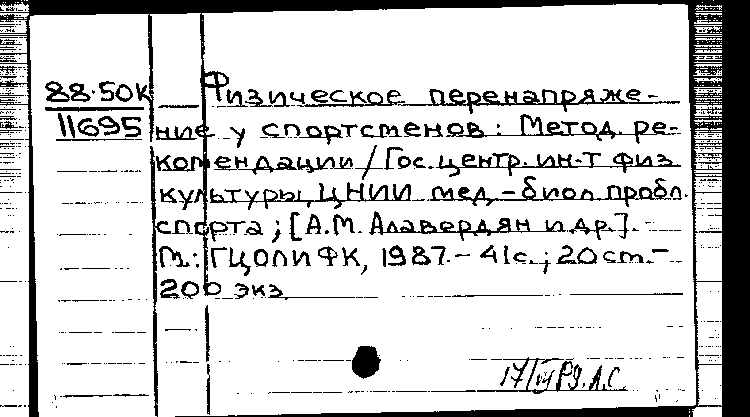 88·50К
11695
Физическое перенапряже-
ние у спортсменов: Метод. ре-
комендации/Гос. центр. ин-т физ
культуры, ЦНИИ мед.-биол. пробл.
спорта; [А.М. Алавердян и др.]. -
М.: ГЦОЛИФК, 1987. - 41с.; 20 ст. -
200 экз.
17/